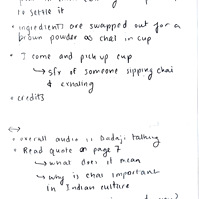 to settle it
• ingredients are swapped out for a
brown powder as chai in cup
• I come and pick up cup
↳ sfx of someone sipping chai
& exhaling
• credits
↔
• overall audio is Dadaji talking
• Read quote on page 7
↳ what does it mean
↳ why is chai important
in Indian culture